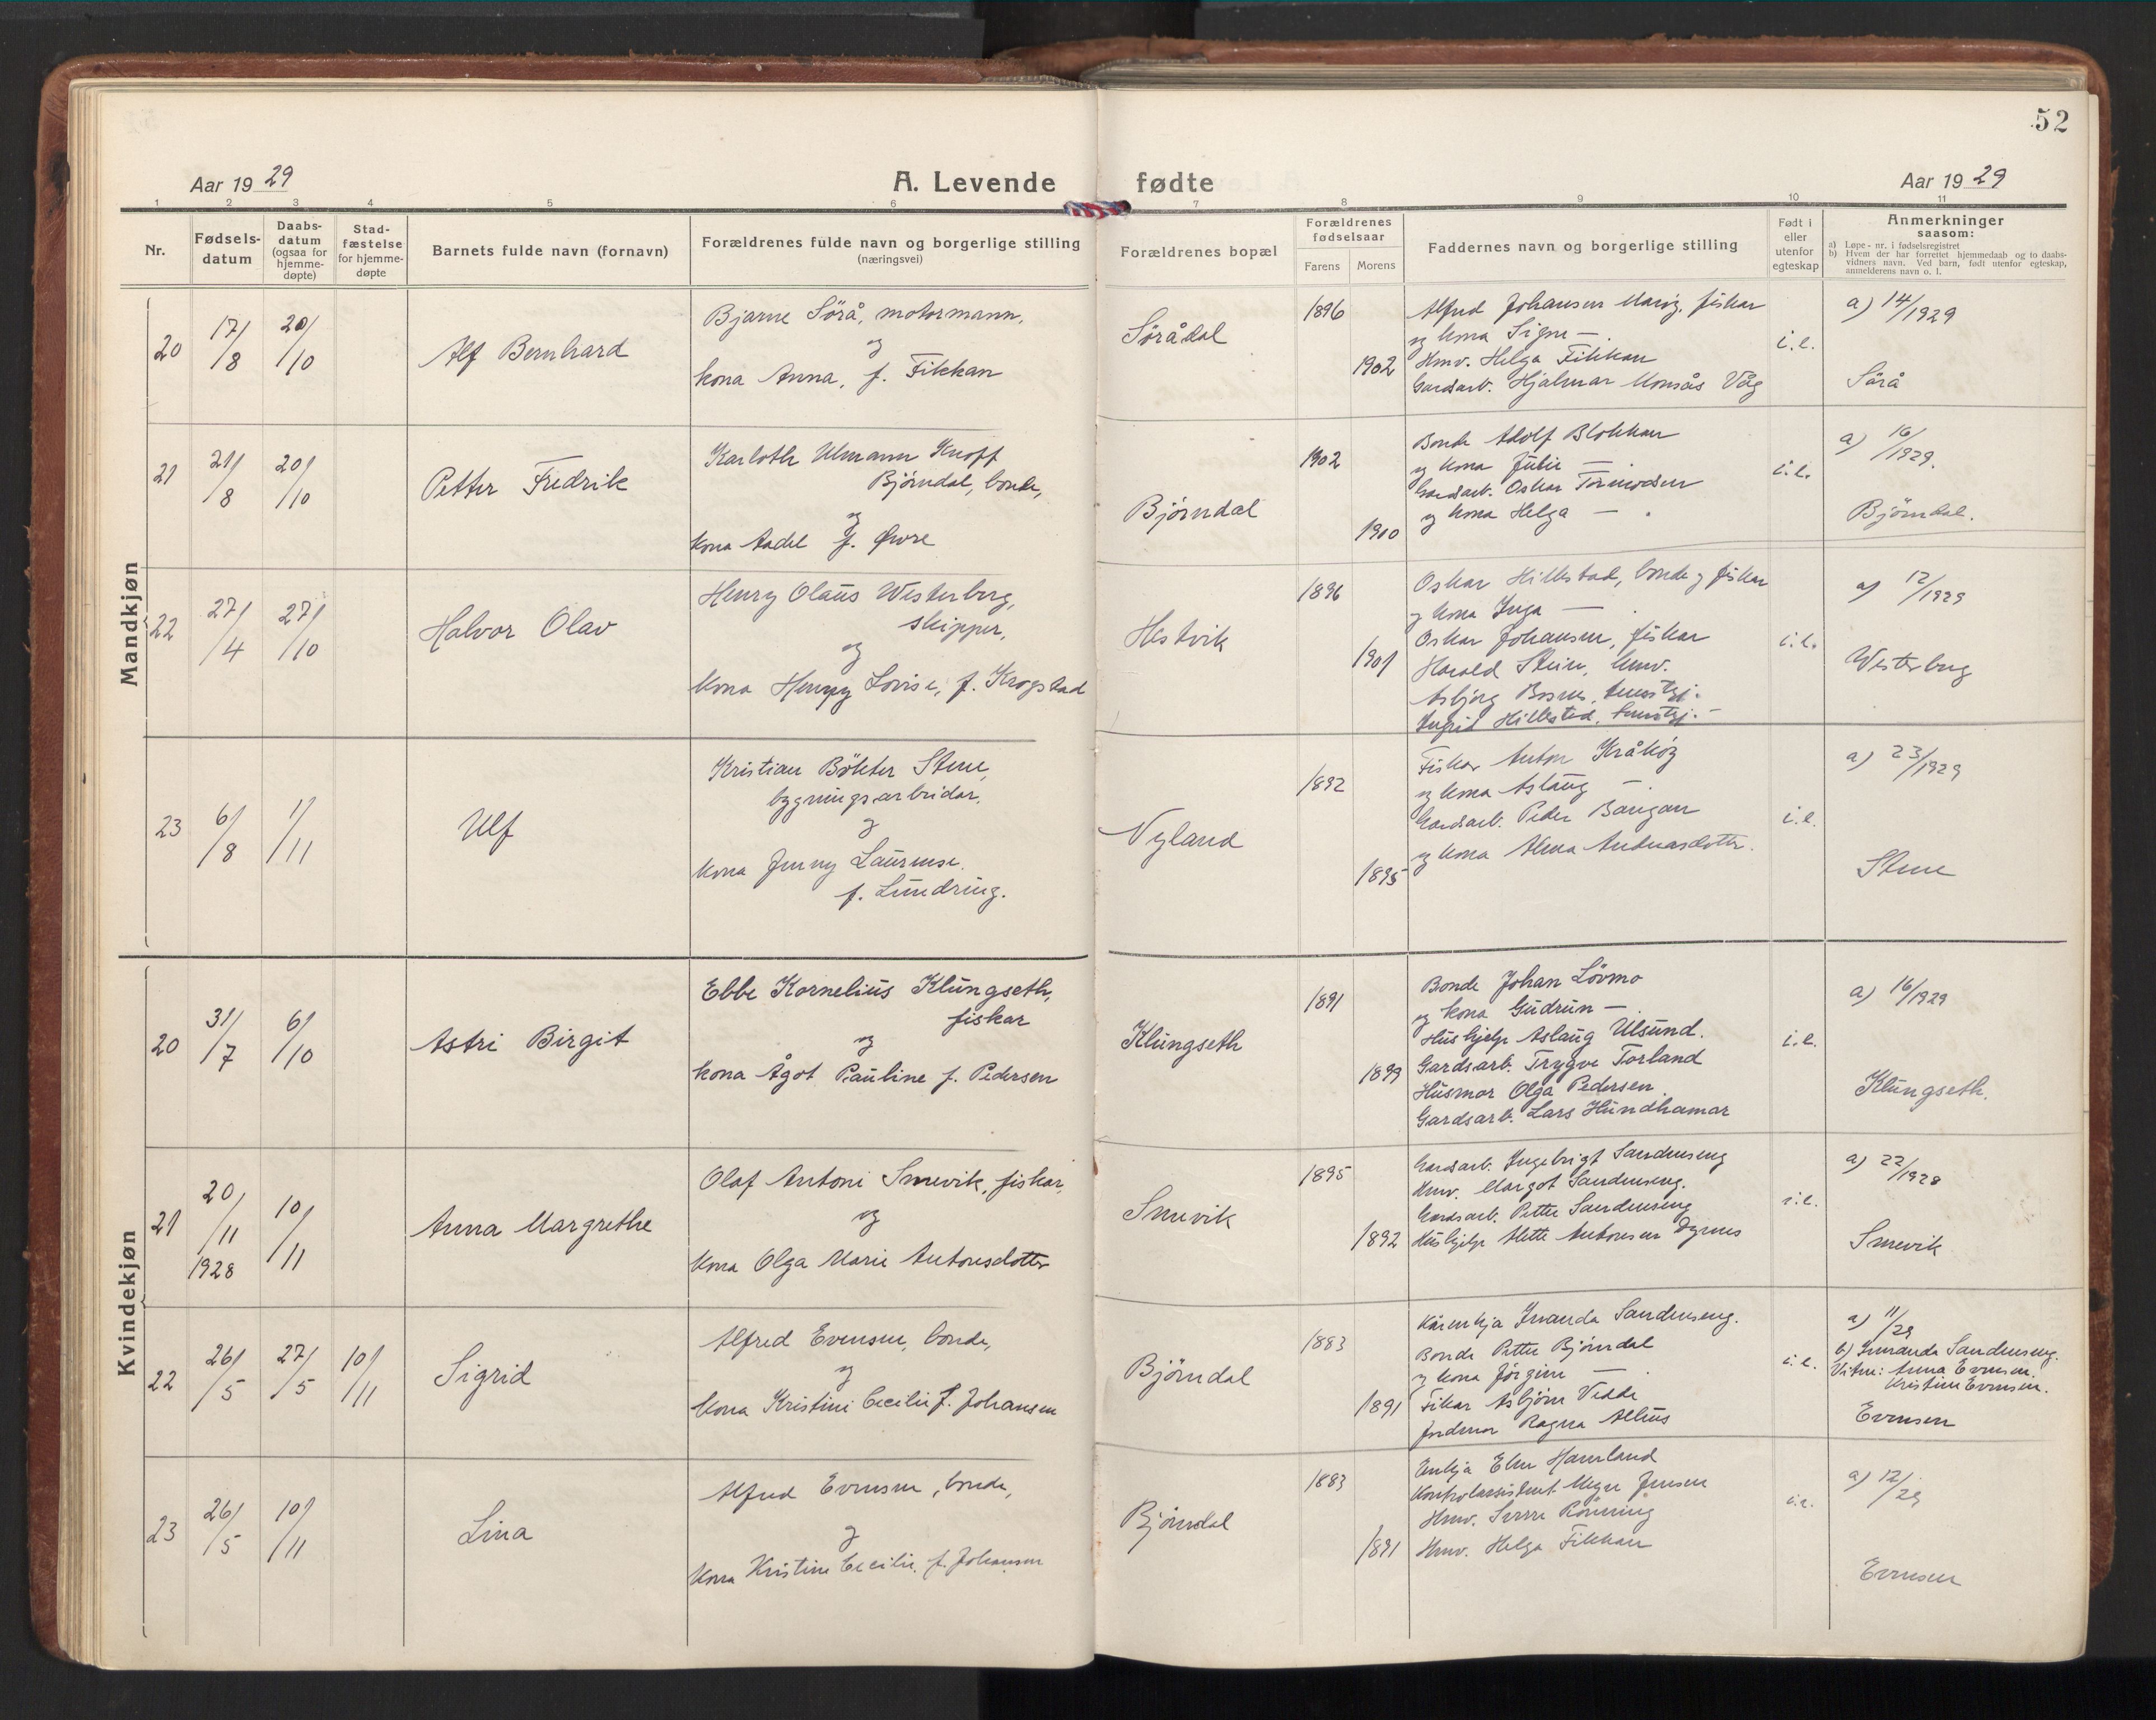 52
Aar 1929
A. Levende fødte
Aar 1929
1 2 3 4 5 6 7 8 9 10 11
Nr.
Fødsels-
datum
Daabs-
datum
(ogsaa for
hjemme-
døpte)
Stad-
fæstelse
for hjemme-
døpte
Barnets fulde navn (fornavn)
Forældrenes fulde navn og borgerlige stilling
(næringsvei)
Forældrenes bopæl
Forældrenes
fødselsaar
Farens Morens
Faddernes navn og borgerlige stilling
Født i
eller
utenfor
egteskap
Anmerkninger
saasom:
a) Løpe-nr. i fødselsregistret
b) Hvem der har forrettet hjemmedaab og to daabs-
vidners navn. Ved barn, født utenfor egteskap,
anmelderens navn o. l.
Mandkjøn
20
17/8
20/10
Alf Bernhard
Bjarne Sörå, motormann,
og
kona Anna, f. Fikkan
Sörådal
1896
1902
Alfred Johansen, fiskar
og kona Signe —
Hmv. Helga Fikkan
Gardsarb. Hjalmar Monsås Våg
i.e.
a) 14/1929
Sörå
21
21/8
20/10
Petter Fredrik
Karloth Ulmann Knoff
Björndal, bonde,
og
kona Aadel f. Øvre
Björndal
1902
1900
Bonde Adolf Blokkan
og kona Julie —.
Gardsarb. Oskar Tormodsen
og kona Helga — .
i.e.
a) 16/1929.
Björndal.
22
27/4
27/10
Halvor Olav
Henry Olaus Westerberg,
skipper,
og
kona Henny Lovise, f. Krogstad
Hestvik
1896
1901
Oskar Hillestad, bonde og fiskar
og kona Inga —.
Oskar Johansen, fiskar
Harald Stein, hmv.
Asbjörg
Ingrid Hillestad,
i.e.
a) 12/1929
Westerberg
23
6/8
1/11
Ulf
Kristian Bökter Stene,
bygningsarbeidar,
og
kona Jenny Laurense,
f. Lundring.
Nyland
1892
1895
Fiskar Anton Kråköy
og kona Aslaug —.
Gardsarb. Peder
og kona Alma
i.e.
a) 23/1929
Stene
Kvindekjøn
20
31/7
6/10
Astri Birgit
Ebbe Kornelius Klungseth,
fiskar
og
kona Ågot Pauline f. Pedersen
Klungseth
1891
1899
Bonde Johan Lövmo
og kona Gudrun —.
Hushjelp Aslaug Ulsund.
Gardsarb. Trygve Torland
Husmor Olga Pedersen
Gardsarb. Lars Hundhamar
i.e.
a) 16/1929
Klungseth.
21
20/11
1928
10/11
Anna Margrethe
Olaf Antoni Smevik, fiskar,
og
kona Olga Marie Antonsdotter
Smevik
1895
1892
Gardsarb. Ingebrigt Sandenseng
Hmv. Margot Sandenseng.
Gardsarb. Petter Sandenseng
Hushjelp Mette Antonsen Dyrnes
i.e.
a) 22/1928
Smevik
22
26/5
27/5
10/11
Sigrid
Alfred Evensen, bonde,
og
kona Kristine Cecilie f. Johansen
Björndal
1883
1891
Iveranda Sandenseng.
Bonde Petter Björndal
og kona Jörgine —
Fikar Asbjörn Vedde
Jordmor Ragna
i.e.
a) 11/29
b) Iveranda Sandenseng.
Vitne: Anna Evensen.
Kristine Evensen.
Evensen
23
26/5
10/11
Lina
Alfred Evensen, bonde,
og
kona Kristine Cecilie, f. Johansen
Björndal
1883
1891
Enkja Elen Hamland
Kontrolassistent Jensen
Hmv. Sverre Rönning
Hmv. Helga Fikkan
i.e.
a) 12/29
Evensen